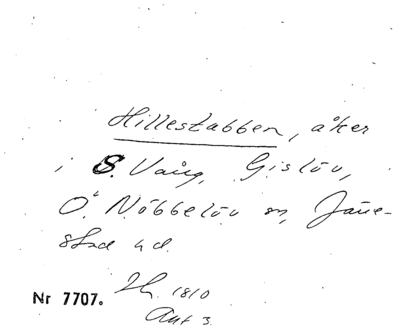 Hillestabben, åker
i S. Vång, Gislöv,
Ö. Nöbbelöv sn, Järre-
stad hd.
Lh. 1810
Akt 3.
Nr 7707.